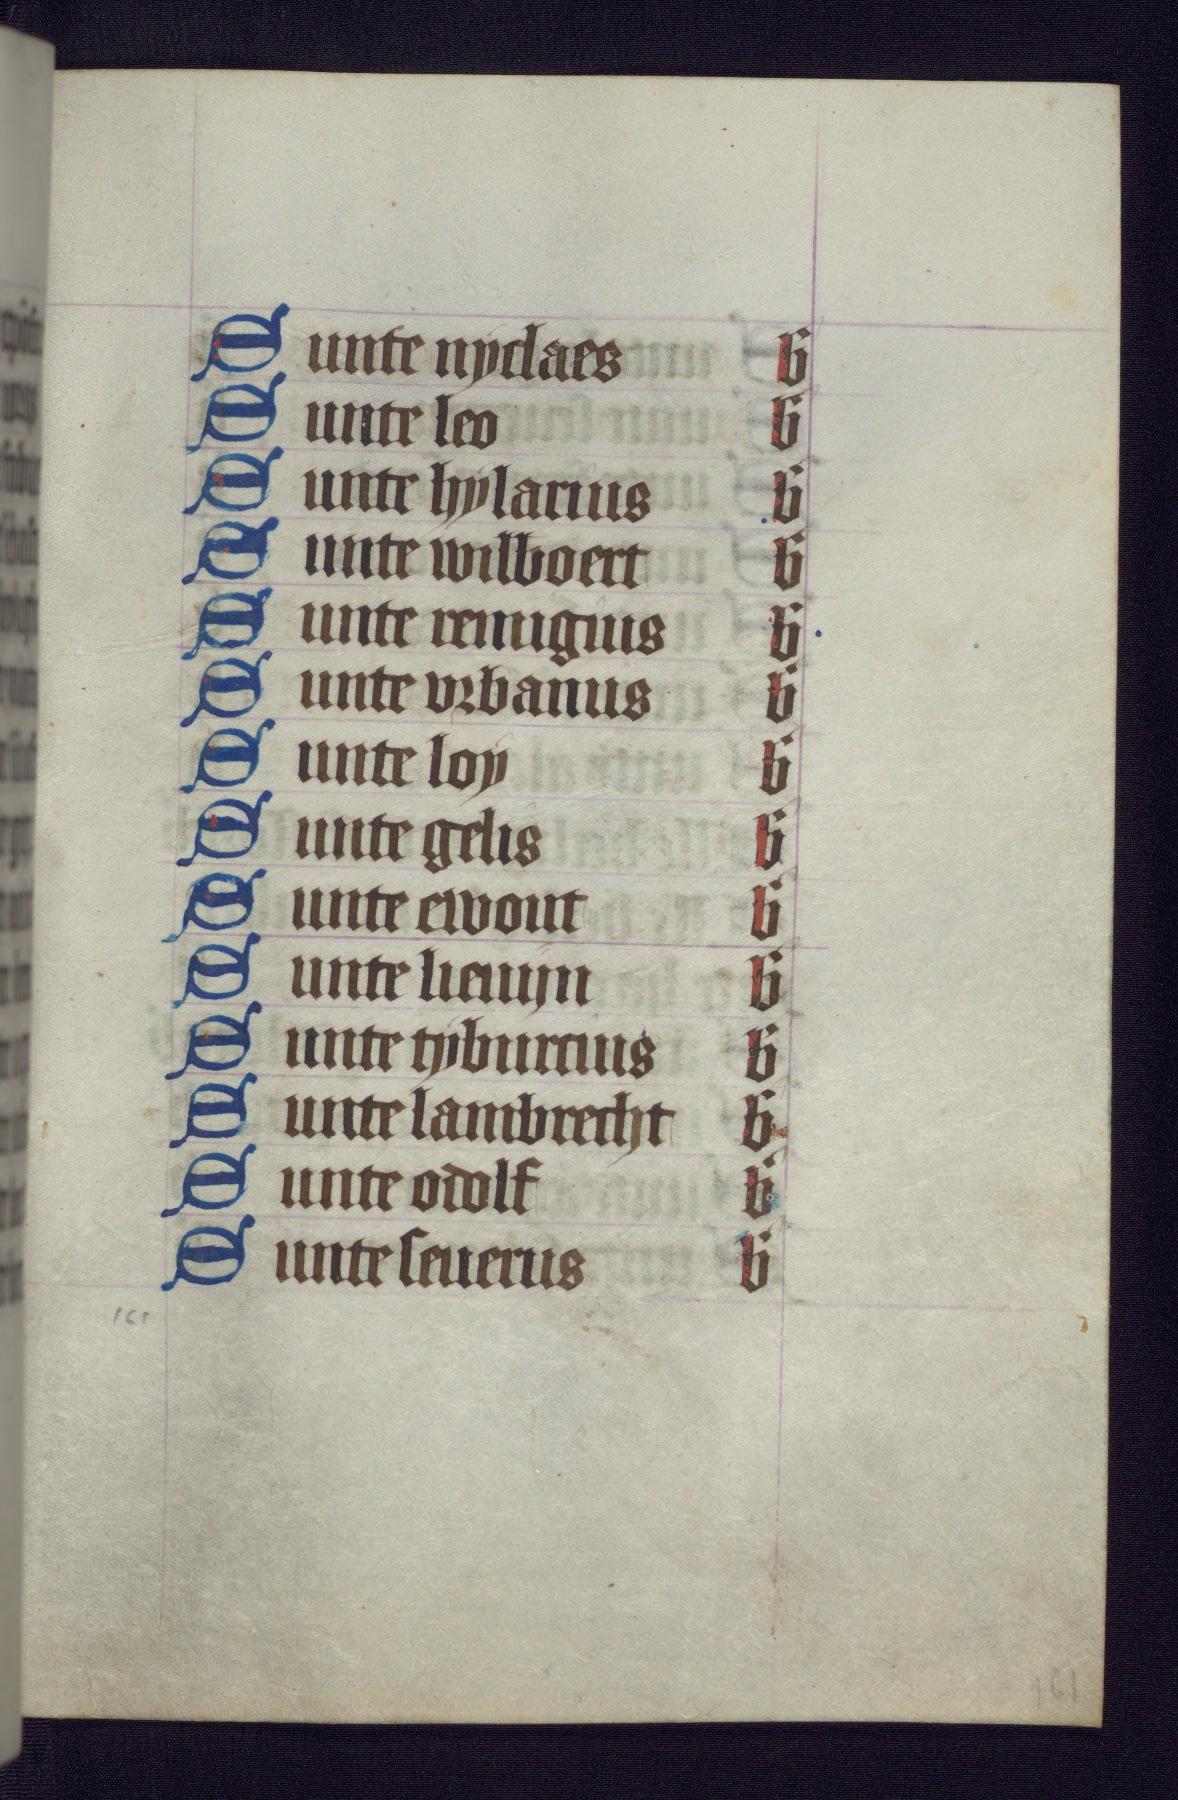 Sunte nyclaes b
Sunte leo b
Sunte hylarius b
Sunte wilboert b
Sunte remigius b
Sunte vrbanus b
Sunte loy b
Sunte gelis b
Sunte ewout b
Sunte lieuijn b
Sunte tyburcius b
Sunte lambrecht b
Sunte odolf b
Sunte seuerus b
161
161